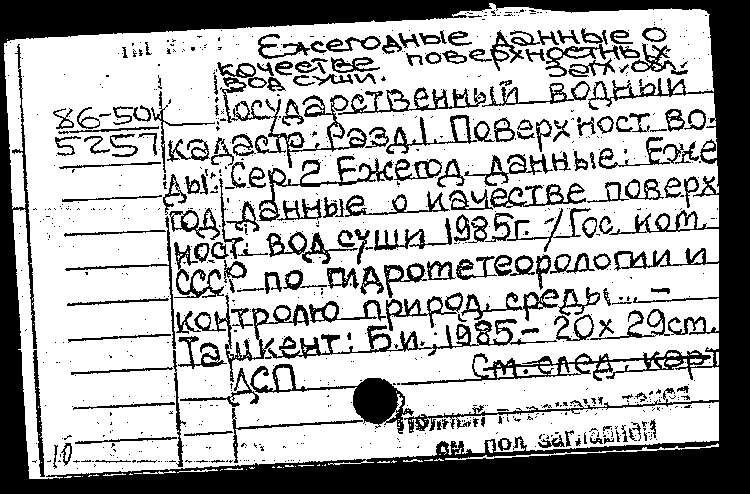 Ежегодные данные о
качестве поверхностных
вод суши. Загл. обл.
86-50к Государственный водный
5257 кадастр: Разд.1. Поверхност. во-
ды: Сер.2 Ежегод. данные: Еже
год. данные о качестве поверх
ност. вод суши 1985г. / Гос. ком.
СССР по гидрометеорологии и
контролю природ. среды... –
Ташкент: Б.и., 1985.– 20х29см.
ДСП. См. след. карт
Полный перечень томов
см. под заглавием
10